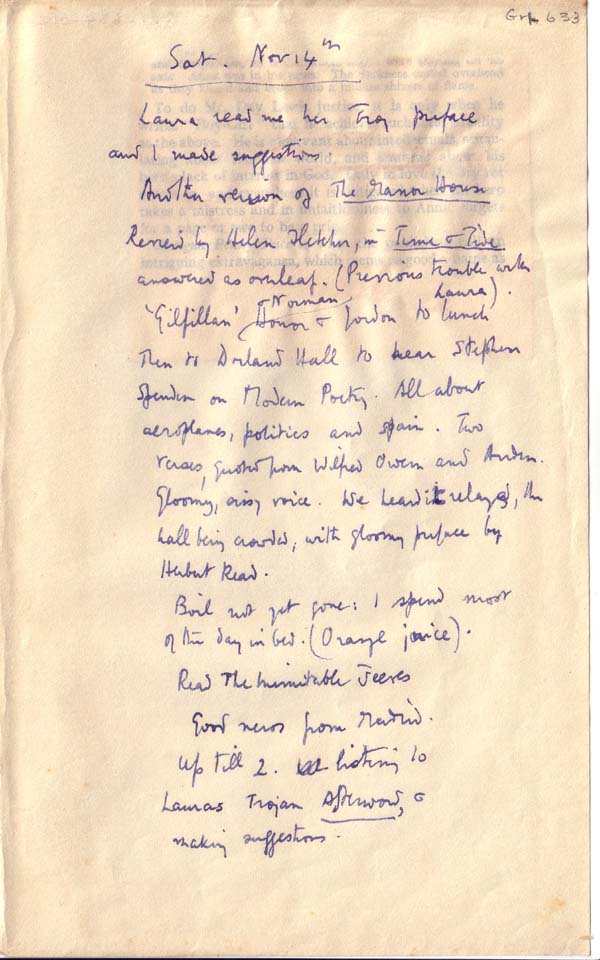 Grk 633
Sat. Nov 14th
Laura read me her Troy preface
and I made suggestions
Another version of The Manor House
Review by Helen Fletcher, in Time & Tide
answered as overleaf. (Previous trouble with
Laura).
'Gilfillan' & Norman
Honor & Gordon to lunch
Then to Dorland Hall to hear Stephen
Spender on Modern Poetry. All about
aeroplanes, politics and Spain. Two
verses, quoted from Wilfred Owen and Auden.
Gloomy, sissy voice. We heard it relayed, the
hall being crowded, with gloomy preface by
Herbert Read.
Boil not yet gone: I spend most
of the day in bed. (Orange juice).
Read The Inimitable Jeeves
Good news from Madrid.
Up till 2. listening to
Lauras Trojan Afterword, &
making suggestions.